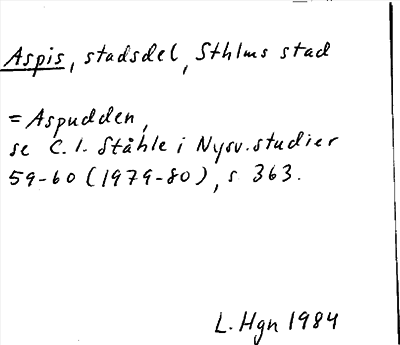 Aspis, stadsdel, Sthlms stad
= Aspudden,
se C. I. Ståhle i Nysv. studier
59-60 (1979-80), s 363.
L. Hgn 1984